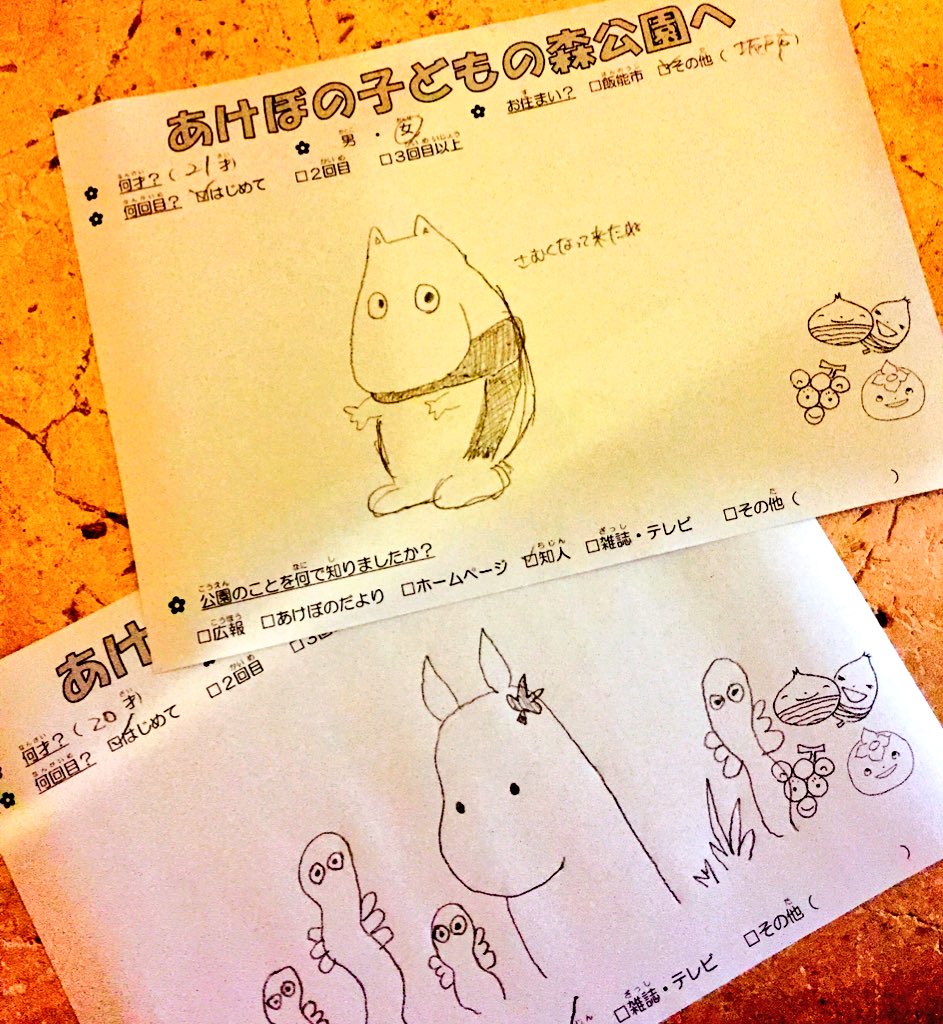 あけぼの子どもの森公園へ
何才?(21才) 男・女 お住まい? □飯能市 □その他(
何回目? □はじめて □2回目 □3回目以上
さむくなって来たね
公園のことを何で知りましたか?
□広報 □あけぼのだより □ホームページ □知人 □雑誌・テレビ □その他( )
あけ
何才?(20才)
何回目? □はじめて □2回目 □3回
□雑誌・テレビ □その他( )